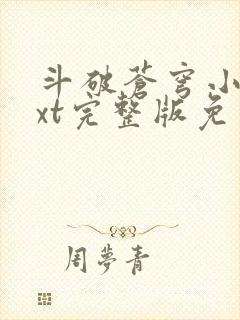 斗破苍穹小
xt完整版免
周梦青